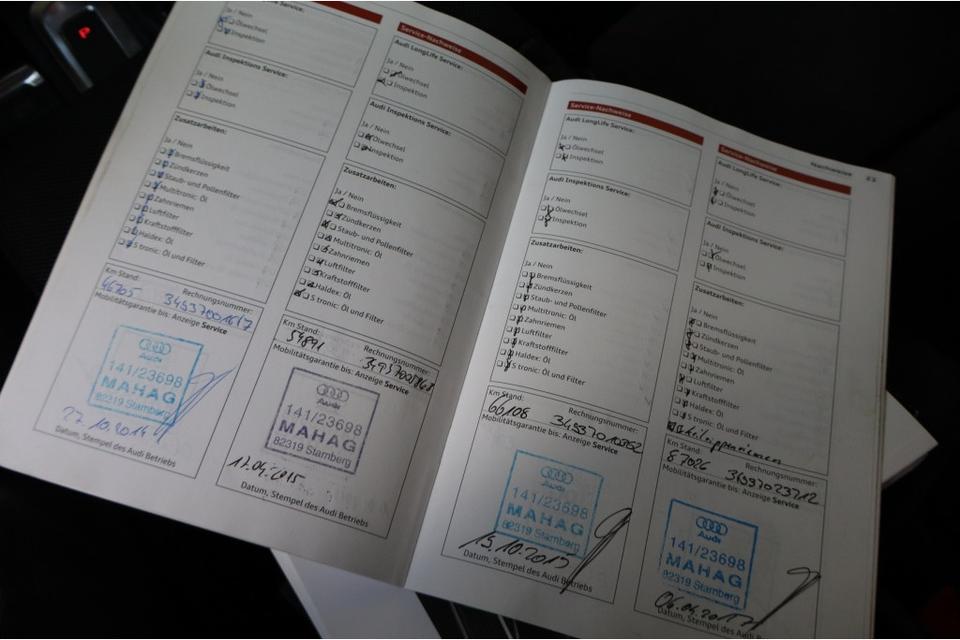 P
Ja / Nein
Ölwechsel
Inspektion
Audi Inspektions Service:
Ja / Nein
Ölwechsel
Inspektion
Zusatzarbeiten:
Ja / Nein
Bremsflüssigkeit
Zündkerzen
Staub- und Pollenfilter
Multitronic: Öl
Zahnriemen
Luftfilter
Kraftstofffilter
Haldex: Öl
S tronic: Öl und Filter
Km Stand: Rechnungsnummer:
46705
Mobilitätsgarantie bis: Anzeige Service
Audi
141/23698
MAHAG
82319 Starnberg
27.10.2014
Datum, Stempel des Audi Betriebs
Service-Nachweise
Audi LongLife Service:
Ja / Nein
Ölwechsel
Inspektion
Audi Inspektions Service:
Ja / Nein
Ölwechsel
Inspektion
Zusatzarbeiten:
Ja / Nein
Bremsflüssigkeit
Zündkerzen
Staub- und Pollenfilter
Multitronic: Öl
Zahnriemen
Luftfilter
Kraftstofffilter
Haldex: Öl
S tronic: Öl und Filter
Km Stand: Rechnungsnummer:
54891
Mobilitätsgarantie bis: Anzeige Service
Audi
141/23698
MAHAG
82319 Starnberg
17.04.2015
Datum, Stempel des Audi Betriebs
Service-Nachweise
Audi LongLife Service:
Ja / Nein
Ölwechsel
Inspektion
Audi Inspektions Service:
Ja / Nein
Ölwechsel
Inspektion
Zusatzarbeiten:
Ja / Nein
Bremsflüssigkeit
Zündkerzen
Staub- und Pollenfilter
Multitronic: Öl
Zahnriemen
Luftfilter
Kraftstofffilter
Haldex: Öl
S tronic: Öl und Filter
Km Stand: Rechnungsnummer:
66108
Mobilitätsgarantie bis: Anzeige Service
Audi
141/23698
MAHAG
82319 Starnberg
15.10.2015
Datum, Stempel des Audi Betriebs
Nachweise 23
Service-Nachweise
Audi LongLife Service:
Ja / Nein
Ölwechsel
Inspektion
Audi Inspektions Service:
Ja / Nein
Ölwechsel
Inspektion
Zusatzarbeiten:
Ja / Nein
Bremsflüssigkeit
Zündkerzen
Staub- und Pollenfilter
Multitronic: Öl
Zahnriemen
Luftfilter
Kraftstofffilter
Haldex: Öl
S tronic: Öl und Filter
Km Stand: Rechnungsnummer:
87026 34937023712
Mobilitätsgarantie bis: Anzeige Service
Audi
141/23698
MAHAG
82319 Starnberg
06.04.2017
Datum, Stempel des Audi Betriebs